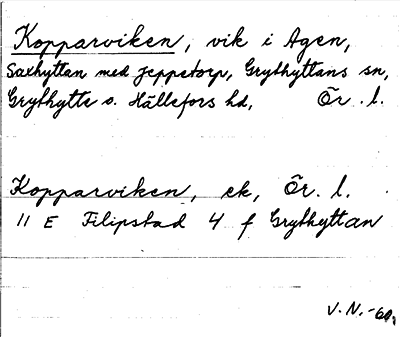 Kopparviken, vik i Agen,
Saxhyttan med Jeppetorp, Grythyttans sn,
Grythytte o. Hällefors hd, Ör. l.
Kopparviken, ek, Ör. l.
11 E Filipstad 4 f Grythyttan
V. N. -60.